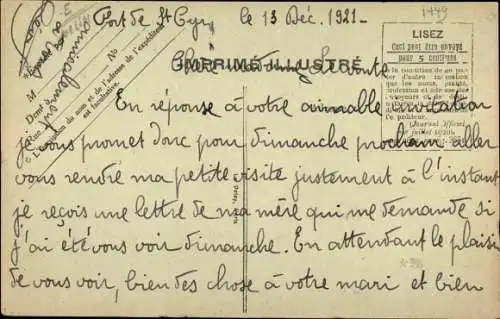 1449
Fort de St Cyr, le 13 Déc. 1921.
IMPRIMÉ ILLUSTRÉ
LISEZ
Ceci peut être envoyé
pour 5 centimes
à la condition de ne por-
(Journal Officiel,
M
Dem
Rue
N°
L'indication du nom et de l'adresse de l'expéditeur
est facultative.
amicalement
à tous
Chère
En réponse à votre aimable invitation
je vous promet donc pour dimanche prochain aller
vous rendre ma petite visite justement à l'instant
je reçois une lettre de ma mère qui me demande si
j'ai été vous voir dimanche. En attendant le plaisir
de vous voir, bien des chose à votre mari et bien